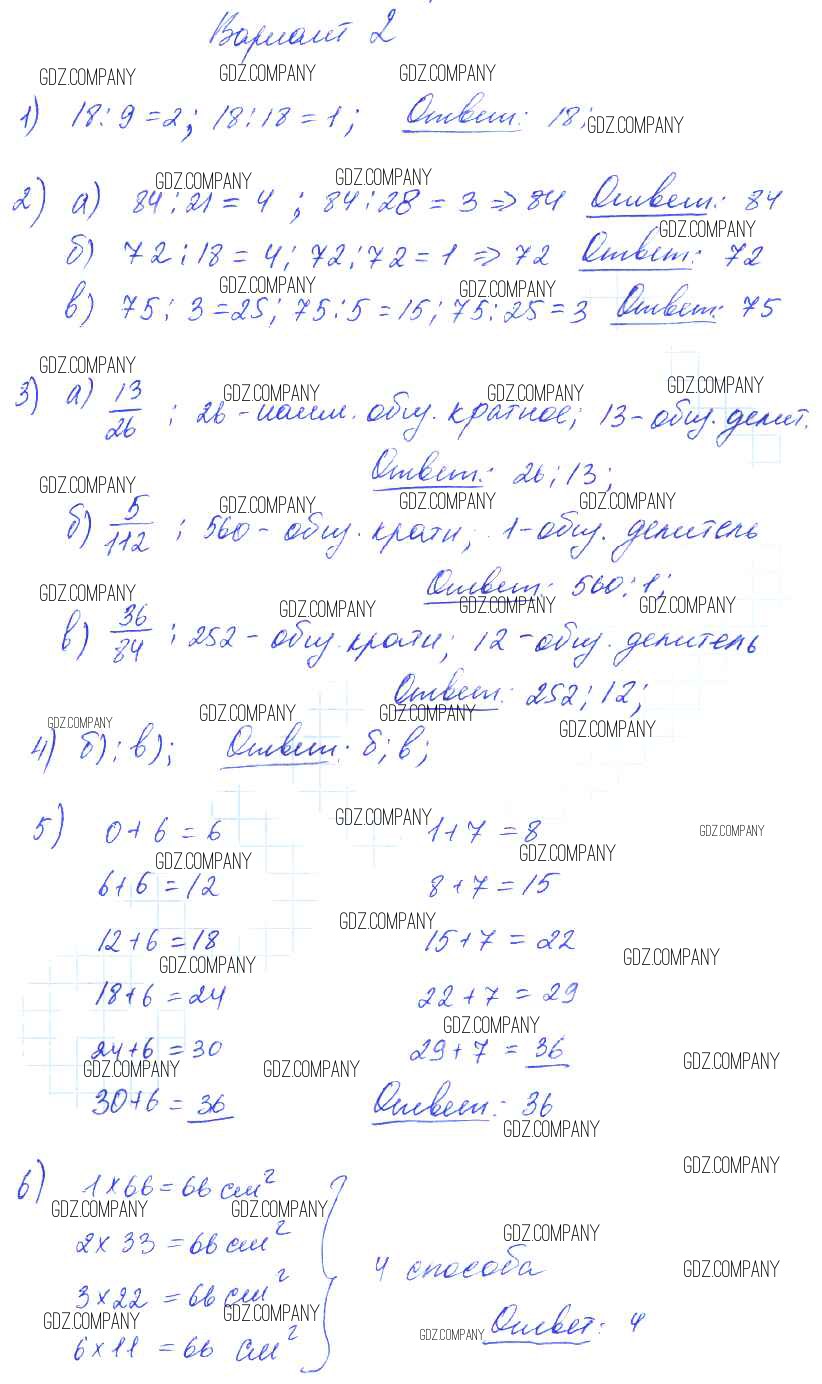 Вариант 2
GDZ.COMPANY GDZ.COMPANY GDZ.COMPANY
1) 18:9=2; 18:18=1; Ответ: 18;
GDZ.COMPANY
GDZ.COMPANY GDZ.COMPANY
2) а) 84:21=4; 84:28=3 ⇒ 84 Ответ: 84
GDZ.COMPANY
б) 72:18=4; 72:72=1 ⇒ 72 Ответ: 72
GDZ.COMPANY GDZ.COMPANY
в) 75:3=25; 75:5=15; 75:25=3 Ответ: 75
GDZ.COMPANY GDZ.COMPANY GDZ.COMPANY GDZ.COMPANY
3) а) 13/26; 26-наим. общ. кратное; 13-общ. делит.
Ответ: 26; 13;
GDZ.COMPANY GDZ.COMPANY GDZ.COMPANY GDZ.COMPANY
б) 5/112; 560-общ. кратн; 1-общ. делитель
Ответ: 560; 1;
GDZ.COMPANY GDZ.COMPANY GDZ.COMPANY GDZ.COMPANY
в) 36/84; 252-общ. кратн; 12-общ. делитель
Ответ: 252; 12;
GDZ.COMPANY GDZ.COMPANY GDZ.COMPANY GDZ.COMPANY
4) б); в); Ответ: б; в;
GDZ.COMPANY GDZ.COMPANY
5) 0+6=6 1+7=8
GDZ.COMPANY GDZ.COMPANY
6+6=12 8+7=15
GDZ.COMPANY
12+6=18 15+7=22
GDZ.COMPANY GDZ.COMPANY
18+6=24 22+7=29
GDZ.COMPANY
24+6=30 29+7=36
GDZ.COMPANY GDZ.COMPANY GDZ.COMPANY
30+6=36 Ответ: 36
GDZ.COMPANY
GDZ.COMPANY
6) 1×66=66 см²
GDZ.COMPANY GDZ.COMPANY GDZ.COMPANY
2×33=66 см²
4 способа
GDZ.COMPANY
3×22=66 см²
GDZ.COMPANY GDZ.COMPANY GDZ.COMPANY
6×11=66 см² Ответ: 4